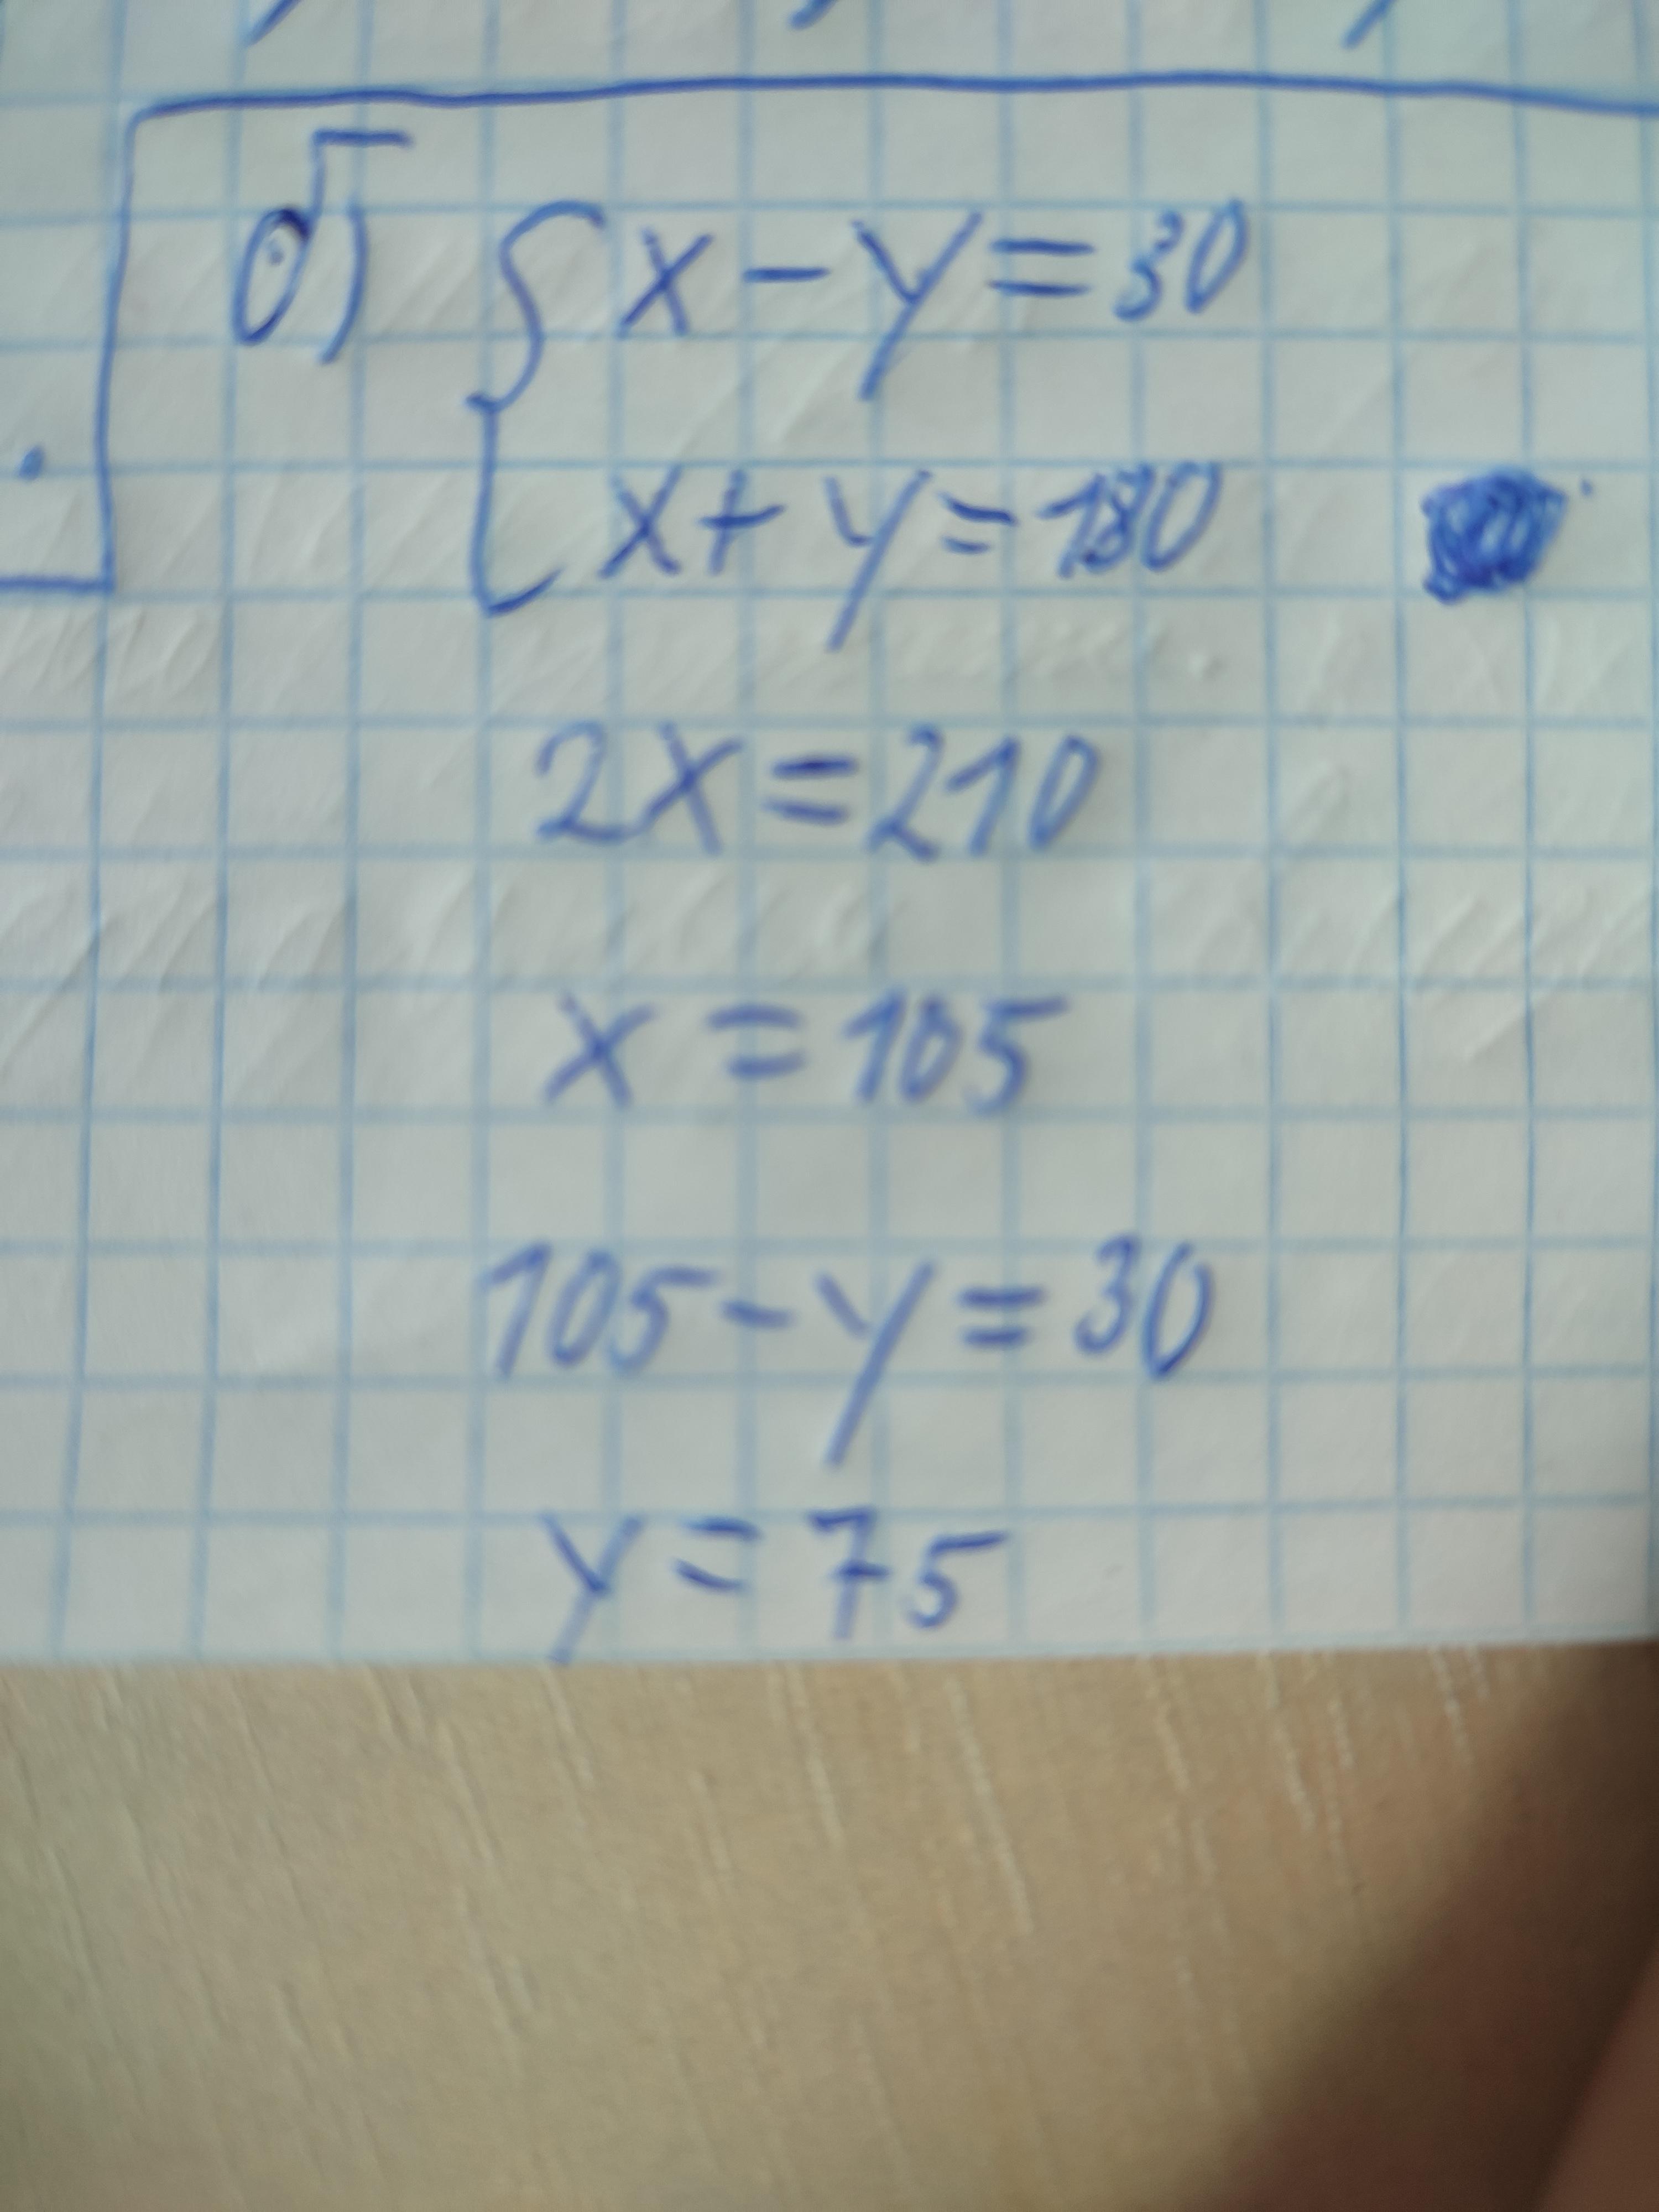 б) { x - y = 30
x + y = 180
2x = 210
x = 105
105 - y = 30
y = 75